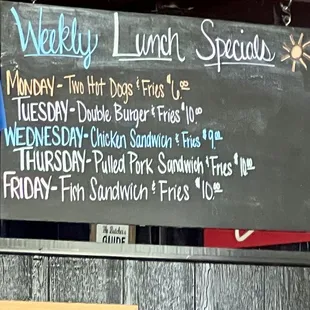 Weekly Lunch Specials
MONDAY - Two Hot Dogs & Fries $6.00
TUESDAY - Double Burger & Fries $10.00
WEDNESDAY - Chicken Sandwich & Fries $9.00
THURSDAY - Pulled Pork Sandwich & Fries $10.00
FRIDAY - Fish Sandwich & Fries $10.00
The Butcher's
GUIDE